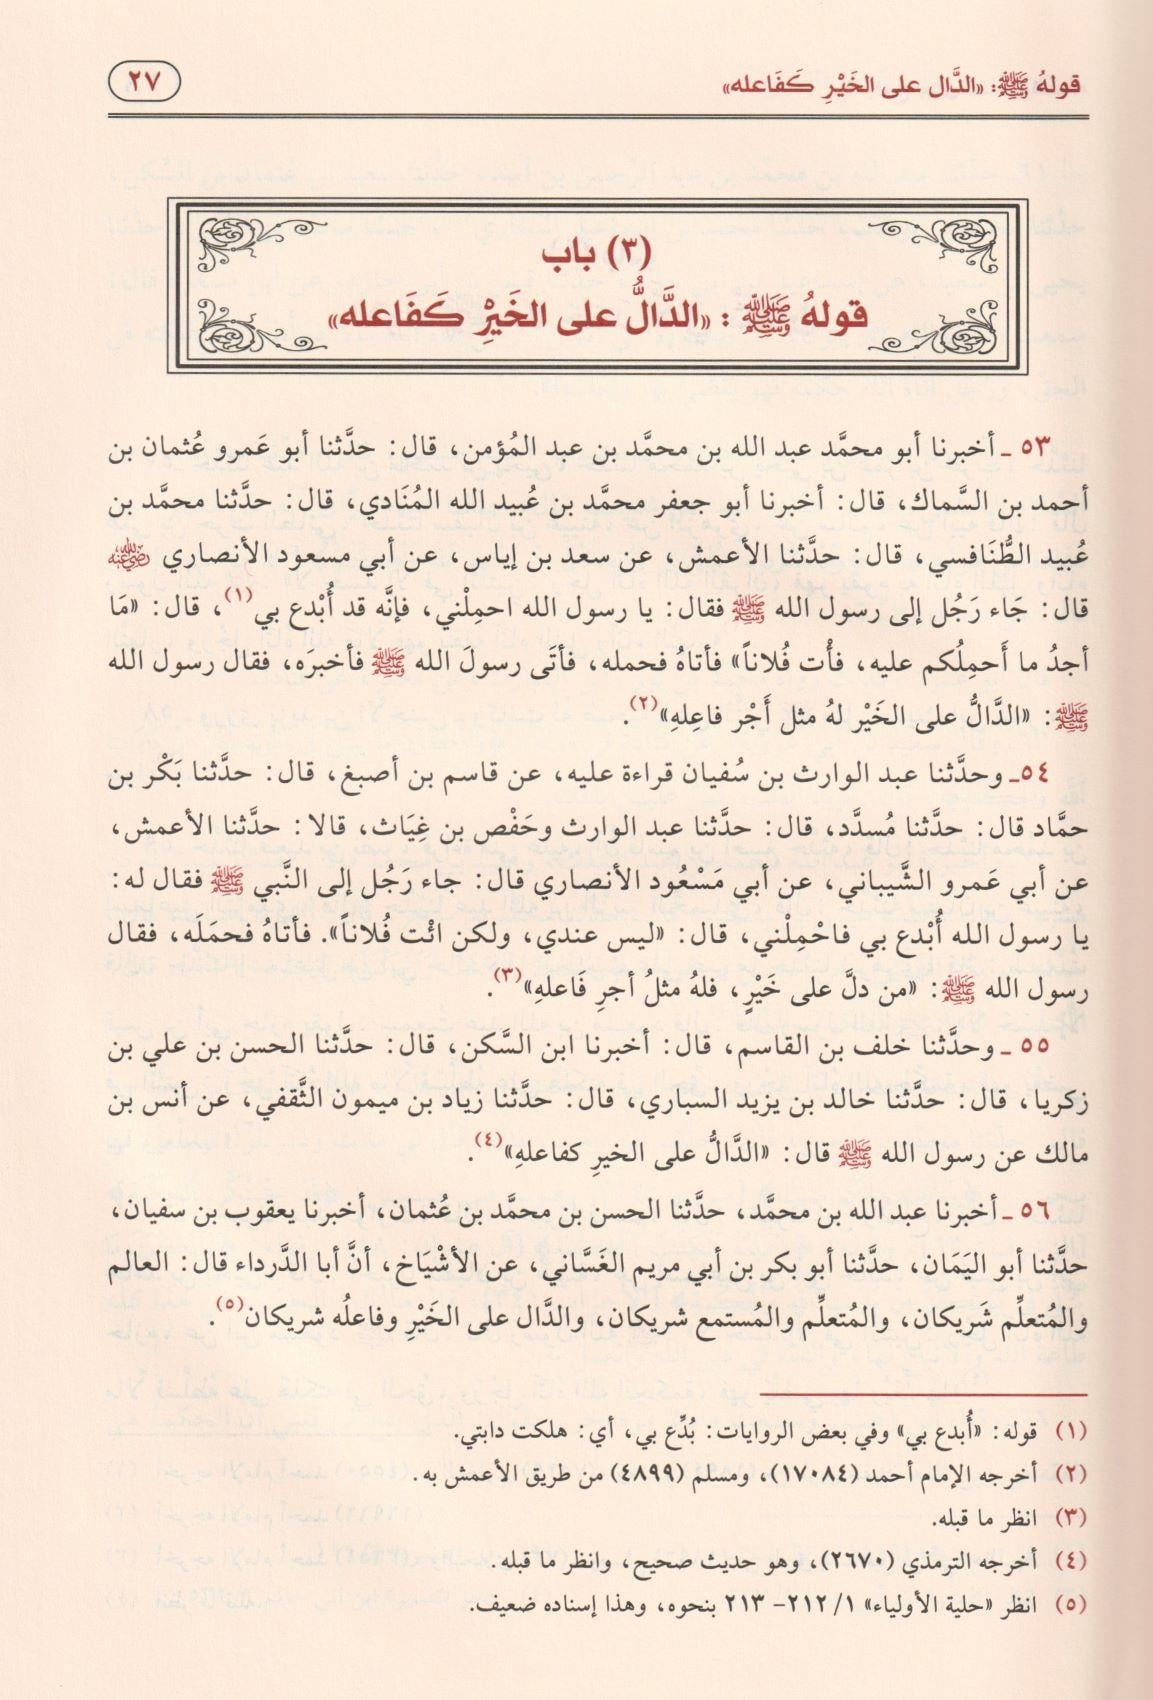 قولهُ ﷺ: «الدَّال على الخَيْرِ كَفَاعله»
٢٧
(٣) باب
قولهُ ﷺ : «الدَّالُّ على الخَيْرِ كَفَاعله»
٥٣ ـ أخبرنا أبو محمَّد عبد الله بن محمَّد بن عبد المُؤمن، قال: حدَّثنا أبو عَمرو عُثمان بن
أحمد بن السَّماك، قال: أخبرنا أبو جعفر محمَّد بن عُبيد الله المُنَادي، قال: حدَّثنا محمَّد بن
عُبيد الطُّنَافسي، قال: حدَّثنا الأعمش، عن سعد بن إياس، عن أبي مسعود الأنصاري رضي الله عنه
قال: جَاء رَجُل إلى رسول الله ﷺ فقال: يا رسول الله احمِلْني، فإنَّه قد أُبْدع بي(١)، قال: «مَا
أجدُ ما أَحمِلُكم عليه، فأْت فُلاناً» فأتاهُ فحمله، فأتَى رسولَ الله ﷺ فأخبرَه، فقال رسول الله
ﷺ: «الدَّالُّ على الخَيْر لهُ مثل أَجْر فاعِلهِ»(٢).
٥٤ـ وحدَّثنا عبد الوارث بن سُفيان قراءة عليه، عن قاسم بن أصبغ، قال: حدَّثنا بَكْر بن
حمَّاد قال: حدَّثنا مُسدَّد، قال: حدَّثنا عبد الوارث وحَفْص بن غِيَاث، قالا: حدَّثنا الأعمش،
عن أبي عَمرو الشَّيباني، عن أبي مَسْعُود الأنصاري قال: جاء رَجُل إلى النَّبي ﷺ فقال له:
يا رسول الله أُبْدع بي فاحْمِلْني، قال: «ليس عندي، ولكن ائْت فُلاناً». فأتاهُ فحمَلَه، فقال
رسول الله ﷺ: «من دلَّ على خَيْرٍ، فلهُ مثلُ أجرِ فَاعلهِ»(٣).
٥٥ ـ وحدَّثنا خلف بن القاسم، قال: أخبرنا ابن السَّكن، قال: حدَّثنا الحسن بن علي بن
زكريا، قال: حدَّثنا خالد بن يزيد السباري، قال: حدَّثنا زياد بن ميمون الثَّقفي، عن أنس بن
مالك عن رسول الله ﷺ قال: «الدَّالُّ على الخيرِ كفاعلهِ»(٤).
٥٦ ـ أخبرنا عبد الله بن محمَّد، حدَّثنا الحسن بن محمَّد بن عُثمان، أخبرنا يعقوب بن سفيان،
حدَّثنا أبو اليَمَان، حدَّثنا أبو بكر بن أبي مريم الغَسَّاني، عن الأشْيَاخ، أنَّ أبا الدَّرداء قال: العالم
والمُتعلِّم شَريكان، والمُتعلِّم والمُستمع شريكان، والدَّال على الخَيْرِ وفاعلُه شريكان(٥).
(١) قوله: «أُبدع بي» وفي بعض الروايات: بُدِّع بي، أي: هلكت دابتي.
(٢) أخرجه الإمام أحمد (١٧٠٨٤)، ومسلم (٤٨٩٩) من طريق الأعمش به.
(٣) انظر ما قبله.
(٤) أخرجه الترمذي (٢٦٧٠)، وهو حديث صحيح، وانظر ما قبله.
(٥) انظر «حلية الأولياء» ١/ ٢١٢- ٢١٣ بنحوه، وهذا إسناده ضعيف.